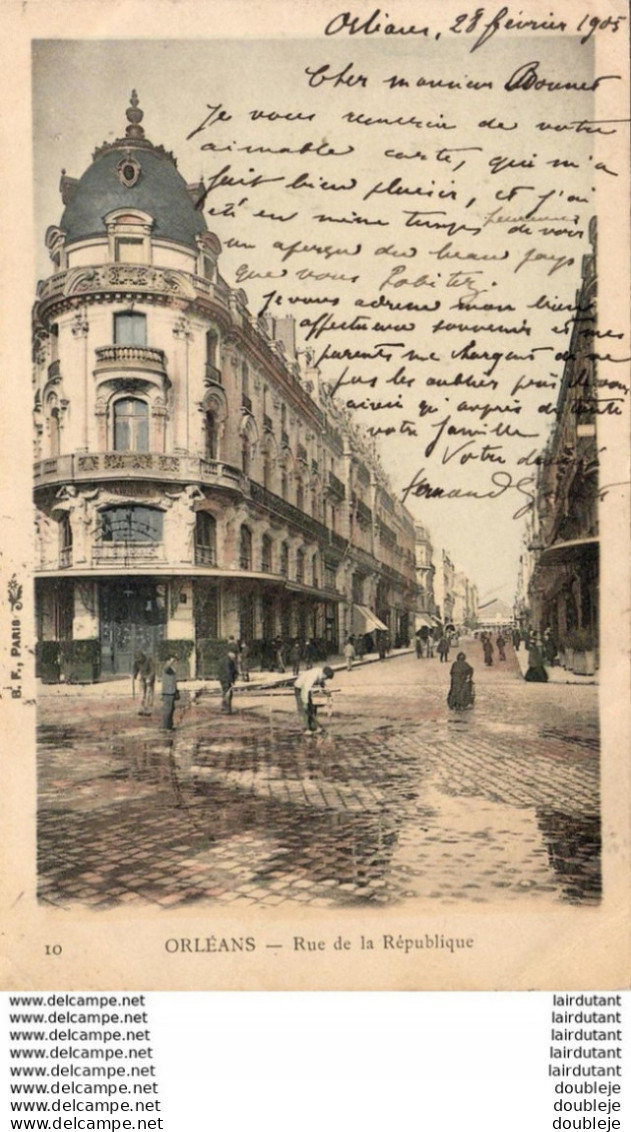 Orléans, 28 février 1905
Cher monsieur Bonnet
Je vous remercie de votre
aimable carte, qui m'a
fait bien plaisir, et j'ai
été en même temps de voir
un aperçu du beau pays
que vous habitez.
Je vous adresse mon bien
affectueux souvenir et mes
parents me chargent de ne
pas les oublier près de vous
ainsi qu'auprès de toute
votre famille.
Votre
Fernand
B. F., PARIS
10
ORLÉANS — Rue de la République
www.delcampe.net lairdutant
www.delcampe.net lairdutant
www.delcampe.net lairdutant
www.delcampe.net lairdutant
www.delcampe.net lairdutant
www.delcampe.net doubleje
www.delcampe.net doubleje
www.delcampe.net doubleje